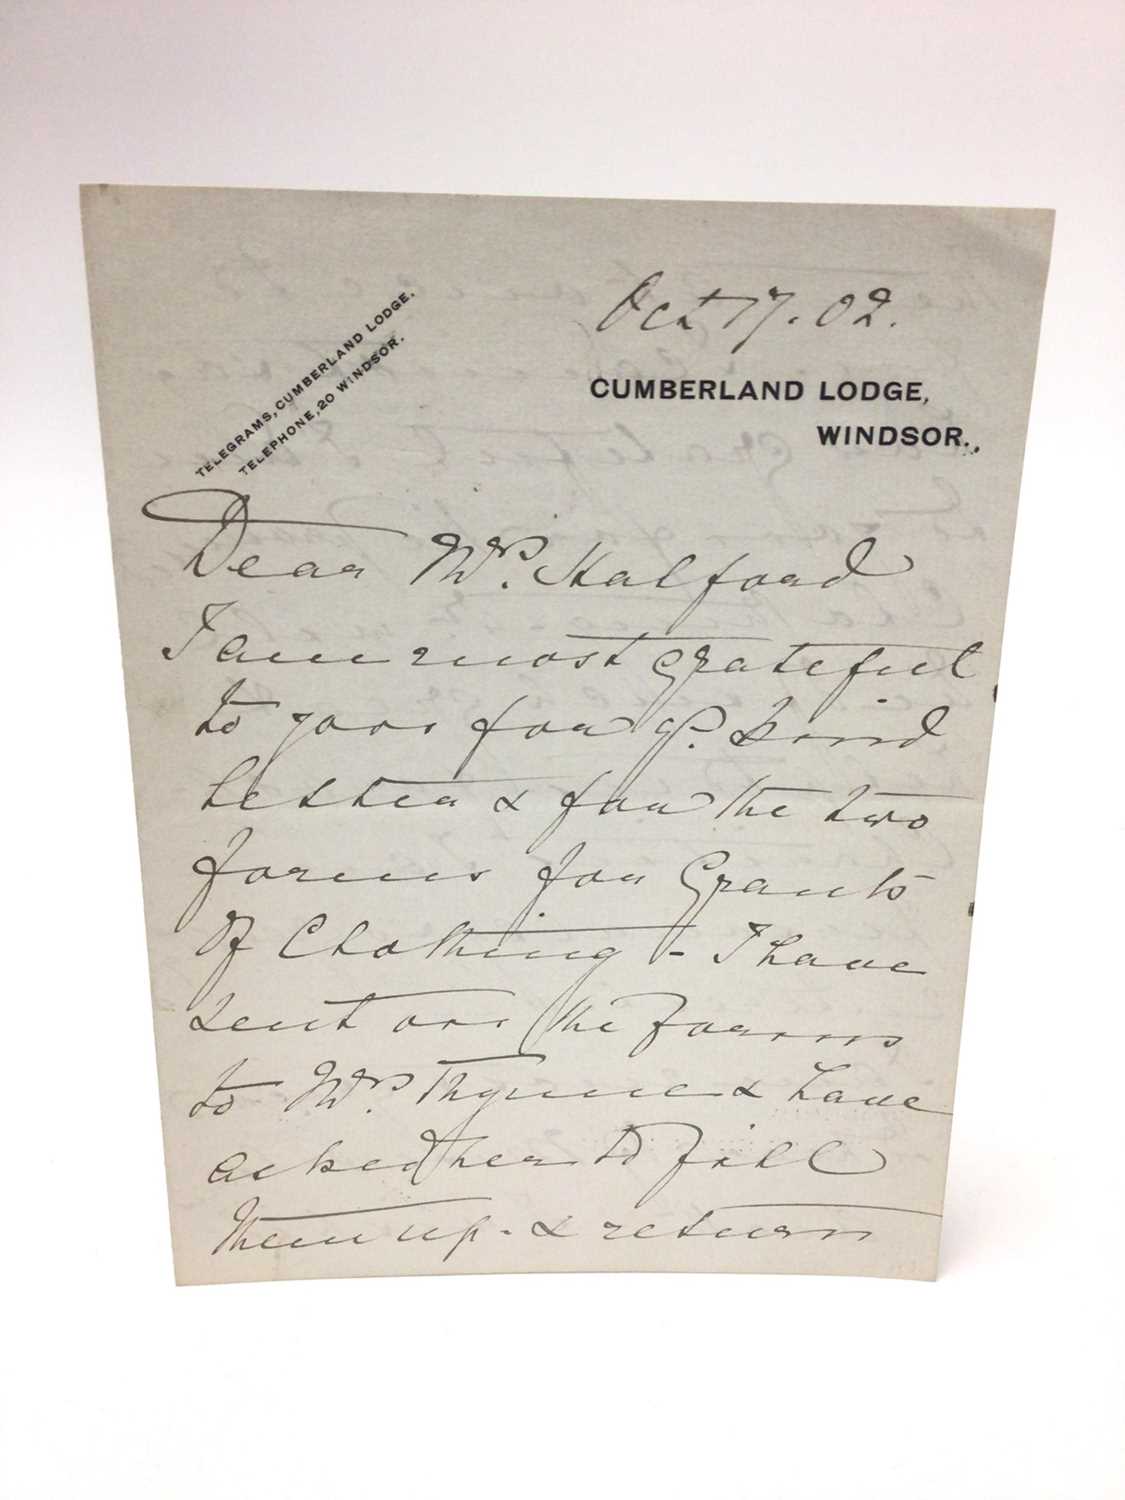 TELEGRAMS, CUMBERLAND LODGE.
TELEPHONE, 20 WINDSOR.
Oct 17. 02.
CUMBERLAND LODGE,
WINDSOR.
Dear Mrs. Halford
I am most grateful
to you for yr. kind
letter & for the two
forms for Grants
of Clothing - I have
sent on the Forms
to Mrs. Thynne & have
asked her to fill
them up - & return